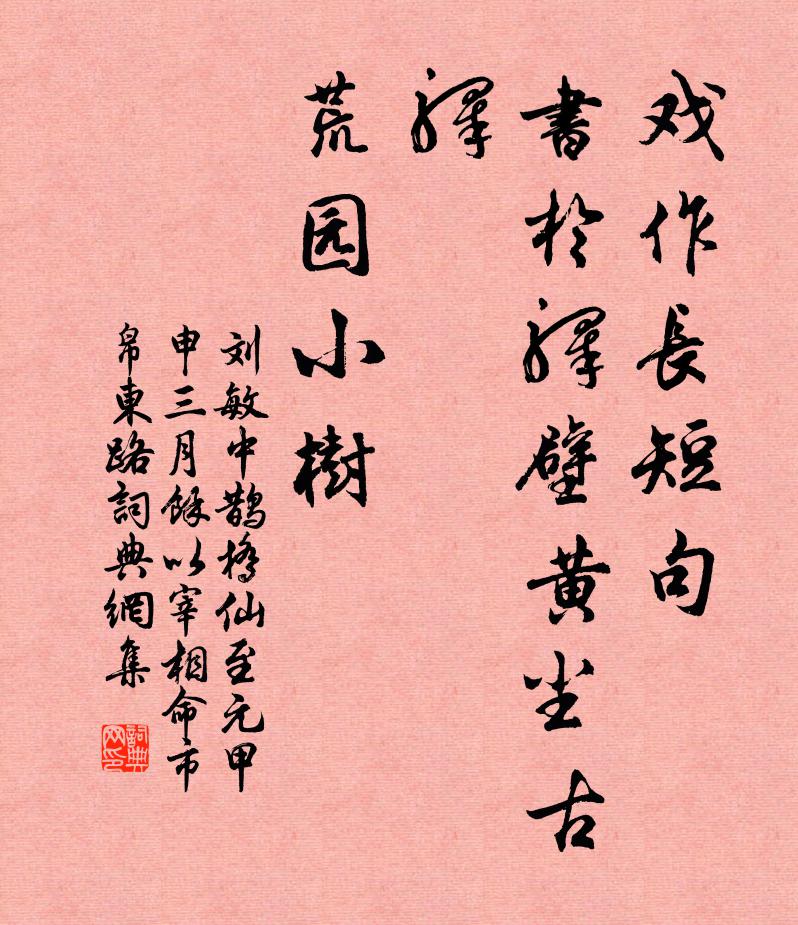 戏作長短句
書於驛壁黄尘古
驛
荒园小樹
刘敏中鵲橋仙至元甲
申三月餘以宰相命市
帛東路詞典網集
詞典网印